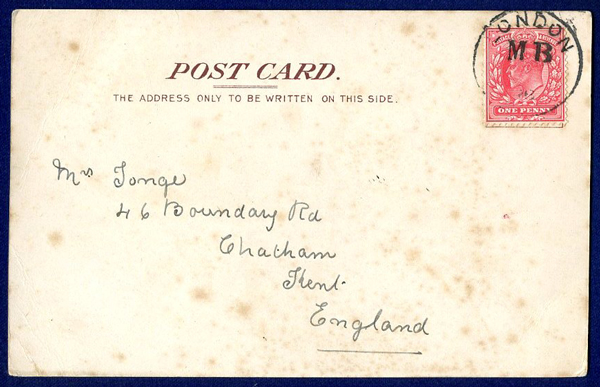 LONDON
MB
ONE PENNY
POST CARD.
THE ADDRESS ONLY TO BE WRITTEN ON THIS SIDE.
Mrs Tonge
46 Boundary Rd
Chatham
Kent.
England